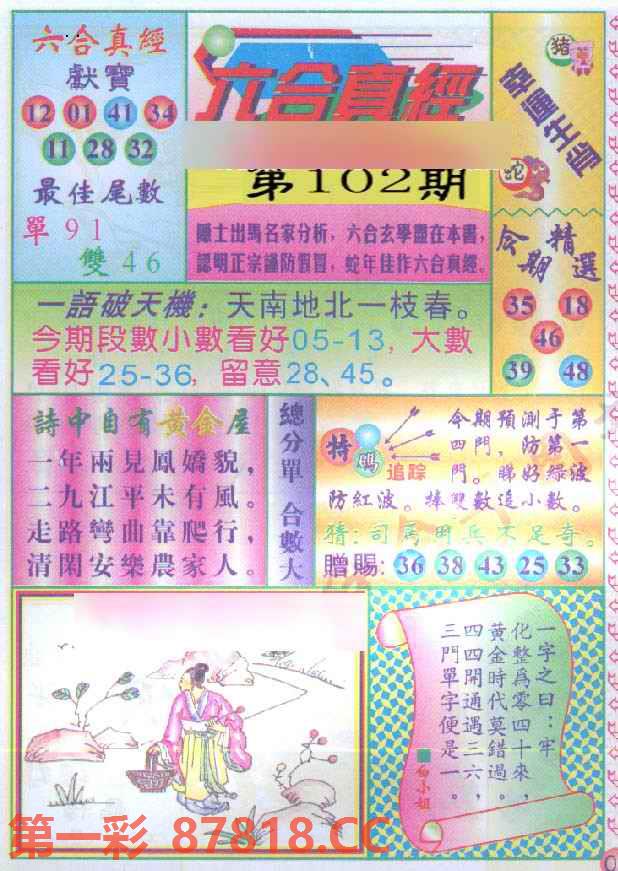 六合真經
獻寶
12 01 41 34
11 28 32
最佳尾數
單 9 1
雙 4 6
六合真經
第102期
隱士出馬名家分析，六合玄學盡在本書，
認明正宗謹防假冒，蛇年佳作六合真經。
豬
蛇
今期精選
35 18
46
39 48
一語破天機：天南地北一枝春。
今期段數小數看好05-13，大數
看好25-36，留意28、45。
詩中自有黃金屋
一年兩見鳳嬌貌，
二九江平未有風。
走路彎曲靠爬行，
清閑安樂農家人。
總分單 合數大
特
碼
追踪
今期預測于第
四門，防第一
門。睇好綠波
防紅波。捧雙數追小數。
猜：司馬用兵不足奇。
贈賜：36 38 43 25 33
一字之曰：牢
化整爲零四十來，
黃金時代莫錯過。
四四開通遇三六，
三門單字便是一。
白小姐
第一彩 87818.CC